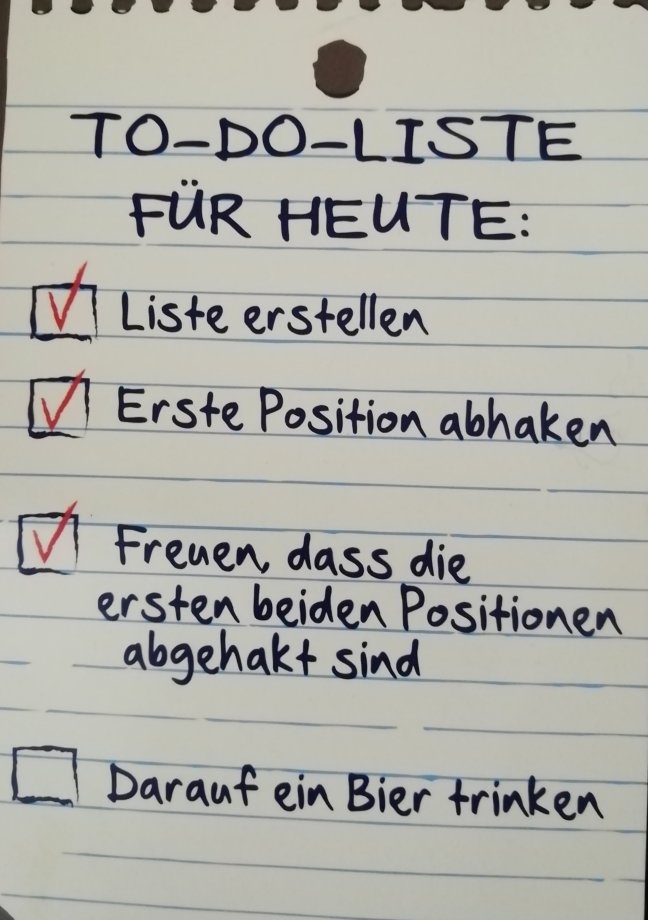 TO-DO-LISTE
FÜR HEUTE:
Liste erstellen
Erste Position abhaken
Freuen, dass die
ersten beiden Positionen
abgehakt sind
Darauf ein Bier trinken